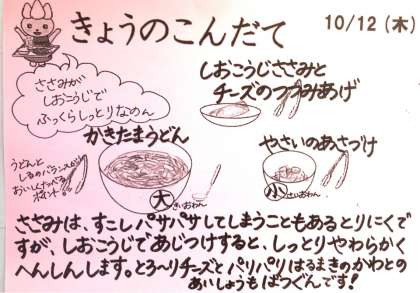 きょうのこんだて
10/12 (木)
ささみが
しおこうじで
ふっくらしっとりなのん
しおこうじささみと
チーズのつつみあげ
かきたまうどん
やさいのあさづけ
うどんと
しるのバランスが
おいしくたべる
ポイント!!
大
きいおわん
小
さいおわん
ささみは、すこしパサパサしてしまうこともあるとりにくで
すが、しおこうじであじつけすると、しっとりやわらかく
へんしんします。とろ〜りチーズとパリパリはるまきのかわとの
あいしょうもばつぐんです!